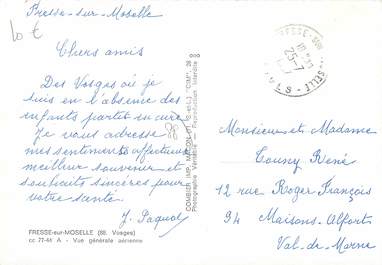 Fresse-sur-Moselle
10 €
Chers amis
Des Vosges où je
suis en l'absence des
enfants partis en cure
Je vous adresse
mes sentiments affectueux
meilleur souvenir et
souhaits sincères pour
votre santé.
J. Paquot
FRESSE-sur-MOSELLE (88. Vosges)
cc 77-44 A - Vue générale aérienne
COMBIER IMP. MACON (S.-et-L.) "CIM"
Photographie Véritable - Reproduction Interdite
FRESSE-SUR-
25-7
Monsieur et Madame
Touny René
12 rue Roger François
94 Maisons-Alfort
Val-de-Marne